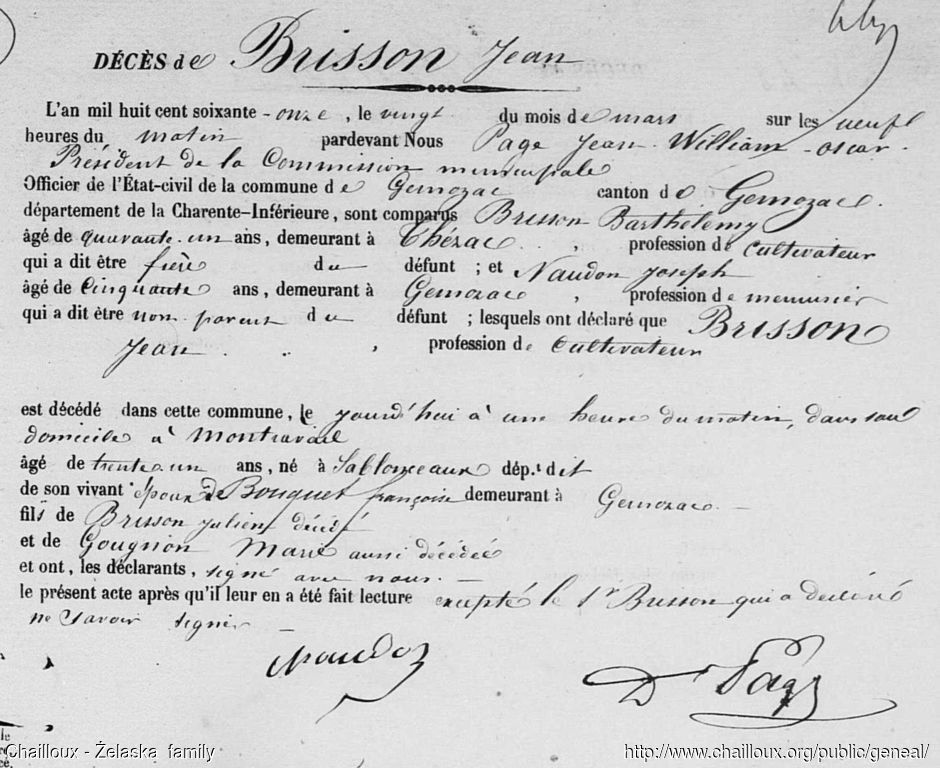 DÉCÈS de Brisson Jean
L'an mil huit cent soixante-onze, le vingt du mois de mars sur les neuf
heures du matin pardevant Nous Page Jean William-oscar-
Président de la Commission municipale
Officier de l'État-civil de la commune de Gemozac canton de Gemozac.
département de la Charente-Inférieure, sont comparus Brisson Barthelemy
âgé de quarante-un ans, demeurant à Thézac, profession de cultivateur
qui a dit être frère du défunt ; et Naudon Joseph
âgé de Cinquante ans, demeurant à Gemozac, profession de menuisier
qui a dit être non parent du défunt ; lesquels ont déclaré que BRISSON
Jean, profession de Cultivateur
est décédé dans cette commune, le jourd'hui à une heure du matin, dans son
domicile à Montravail
âgé de trente-un ans, né à Sablonceaux dép.t dit
de son vivant époux de Bouquet françoise demeurant à Gemozac.
fils de Brisson Julien décédé
et de Gougnon Marie aussi décédée
et ont, les déclarants, signé avec nous.
le présent acte après qu'il leur en a été fait lecture excepté le Sr Brisson qui a déclaré
ne savoir signer
Naudon
Dr Page
Chailloux - Želaska family
http://www.chailloux.org/public/geneal/